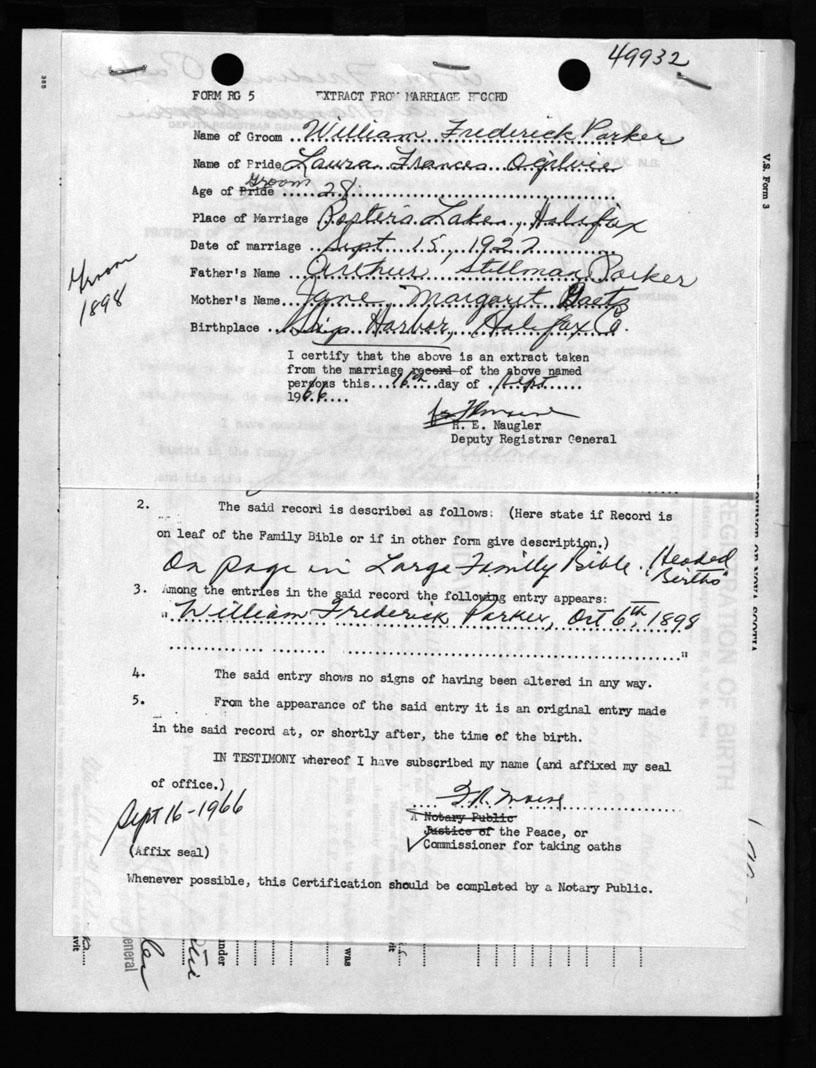 49932
FORM RG 5 EXTRACT FROM MARRIAGE RECORD
Name of Groom ..William Frederick Parker
Name of Bride Laura Frances Ogilvie
Groom
Age of Bride ......28
Place of Marriage Porters Lake, Halifax
Date of marriage ..Sept 15, 1927
Father's Name ..Arthur Stillman Parker
Mother's Name..Jane Margaret Gaetz
Birthplace ..Ship Harbor, Halifax Co.
Groom
1898
I certify that the above is an extract taken
from the marriage record of the above named
persons this...16th..day of ..Sept......
1966....
R. E. Naugler
Deputy Registrar General
2. The said record is described as follows: (Here state if Record is
on leaf of the Family Bible or if in other form give description.)
On page in Large Family Bible. Headed
"Births"
3. Among the entries in the said record the following entry appears:
"William Frederick Parker, Oct 6th, 1898
"
4. The said entry shows no signs of having been altered in any way.
5. From the appearance of the said entry it is an original entry made
in the said record at, or shortly after, the time of the birth.
IN TESTIMONY whereof I have subscribed my name (and affixed my seal
of office.)
Sept 16-1966
A Notary Public
Justice of the Peace, or
Commissioner for taking oaths
(Affix seal)
Whenever possible, this Certification should be completed by a Notary Public.
V.S. Form 3
PROVINCE OF NOVA SCOTIA
REGISTRATION OF BIRTH
under
General
was